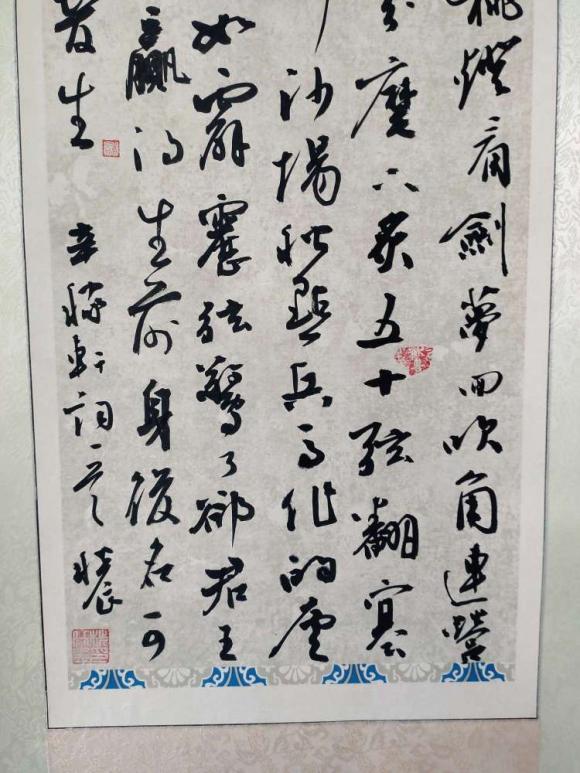 挑燈看劍夢回吹角連營
分麾下炙五十弦翻塞
沙場秋點兵馬作的盧
如霹靂弦驚了卻君王
贏得生前身後名可
發生
辛稼軒詞一首